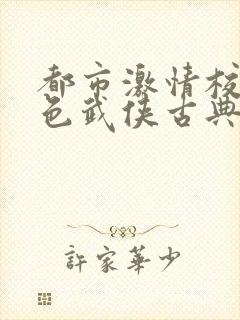 都市激情校
色武侠古典
許家華少